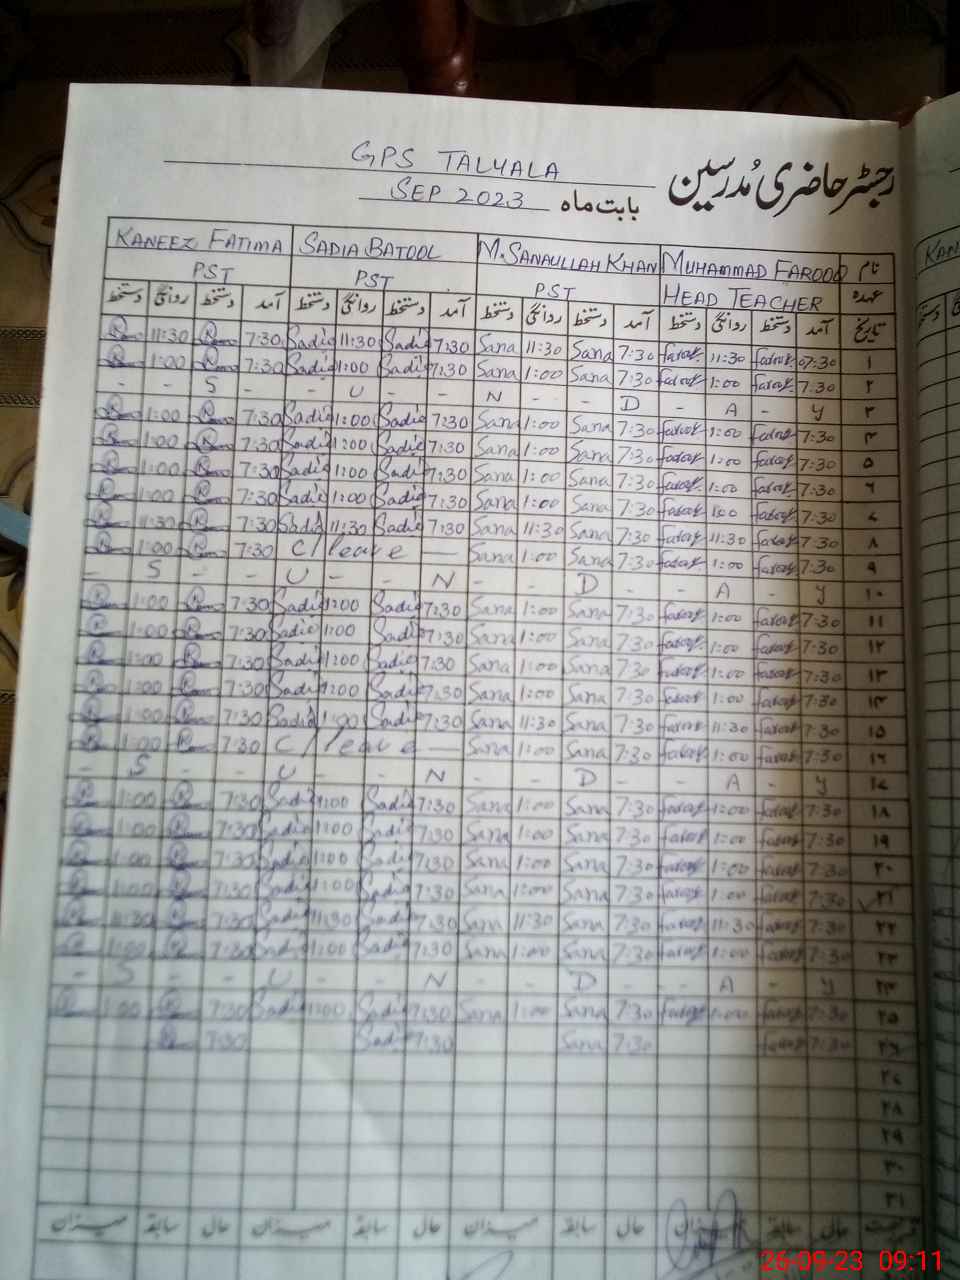 GPS TALYALA
رجسٹر حاضری مُدرسین
بابت ماہ SEP 2023
KANEEZ FATIMA SADIA BATOOL M. SANAULLAH KHAN MUHAMMAD FAROOQ نام
PST PST PST HEAD TEACHER عہدہ
دستخط روانگی دستخط آمد دستخط روانگی دستخط آمد دستخط روانگی دستخط آمد دستخط روانگی دستخط آمد تاریخ
11:30 7:30 Sadia 11:30 Sadia 7:30 Sana 11:30 Sana 7:30 farooq 11:30 farooq 07:30 ۱
1:00 7:30 Sadia 1:00 Sadia 7:30 Sana 1:00 Sana 7:30 farooq 1:00 farooq 7:30 ۲
- - S - - U - - N - - D - A - Y ۳
1:00 7:30 Sadia 1:00 Sadia 7:30 Sana 1:00 Sana 7:30 farooq 1:00 farooq 7:30 ۴
1:00 7:30 Sadia 1:00 Sadia 7:30 Sana 1:00 Sana 7:30 farooq 1:00 farooq 7:30 ۵
1:00 7:30 Sadia 1:00 Sadia 7:30 Sana 1:00 Sana 7:30 farooq 1:00 farooq 7:30 ۶
1:00 7:30 Sadia 1:00 Sadia 7:30 Sana 1:00 Sana 7:30 farooq 1:00 farooq 7:30 ۷
11:30 7:30 Sadia 11:30 Sadia 7:30 Sana 11:30 Sana 7:30 farooq 11:30 farooq 7:30 ۸
1:00 7:30 C/leave — Sana 1:00 Sana 7:30 farooq 1:00 farooq 7:30 ۹
- S - - U - - N - - D - - A - Y ۱۰
1:00 7:30 Sadia 1:00 Sadia 7:30 Sana 1:00 Sana 7:30 farooq 1:00 farooq 7:30 ۱۱
1:00 7:30 Sadia 1:00 Sadia 7:30 Sana 1:00 Sana 7:30 farooq 1:00 farooq 7:30 ۱۲
1:00 7:30 Sadia 1:00 Sadia 7:30 Sana 1:00 Sana 7:30 farooq 1:00 farooq 7:30 ۱۳
1:00 7:30 Sadia 1:00 Sadia 7:30 Sana 1:00 Sana 7:30 farooq 1:00 farooq 7:30 ۱۴
1:00 7:30 Sadia 1:00 Sadia 7:30 Sana 11:30 Sana 7:30 farooq 11:30 farooq 7:30 ۱۵
1:00 7:30 C/leave — Sana 1:00 Sana 7:30 farooq 1:00 farooq 7:30 ۱۶
- S - - U - - N - - D - - A - Y ۱۷
1:00 7:30 Sadia 1:00 Sadia 7:30 Sana 1:00 Sana 7:30 farooq 1:00 farooq 7:30 ۱۸
1:00 7:30 Sadia 1:00 Sadia 7:30 Sana 1:00 Sana 7:30 farooq 1:00 farooq 7:30 ۱۹
1:00 7:30 Sadia 1:00 Sadia 7:30 Sana 1:00 Sana 7:30 farooq 1:00 farooq 7:30 ۲۰
1:00 7:30 Sadia 1:00 Sadia 7:30 Sana 1:00 Sana 7:30 farooq 1:00 farooq 7:30 ۲۱
11:30 7:30 Sadia 11:30 Sadia 7:30 Sana 11:30 Sana 7:30 farooq 11:30 farooq 7:30 ۲۲
1:00 7:30 Sadia 1:00 Sadia 7:30 Sana 1:00 Sana 7:30 farooq 1:00 farooq 7:30 ۲۳
- S - - U - - N - - D - - A - Y ۲۴
1:00 7:30 Sadia 1:00 Sadia 7:30 Sana 1:00 Sana 7:30 farooq 1:00 farooq 7:30 ۲۵
7:30 Sadia 7:30 Sana 7:30 farooq 7:30 ۲۶
۲۷
۲۸
۲۹
۳۰
۳۱
میزان سابقہ حال میزان سابقہ حال میزان سابقہ حال میزان سابقہ حال
26-09-23 09:11
KAN